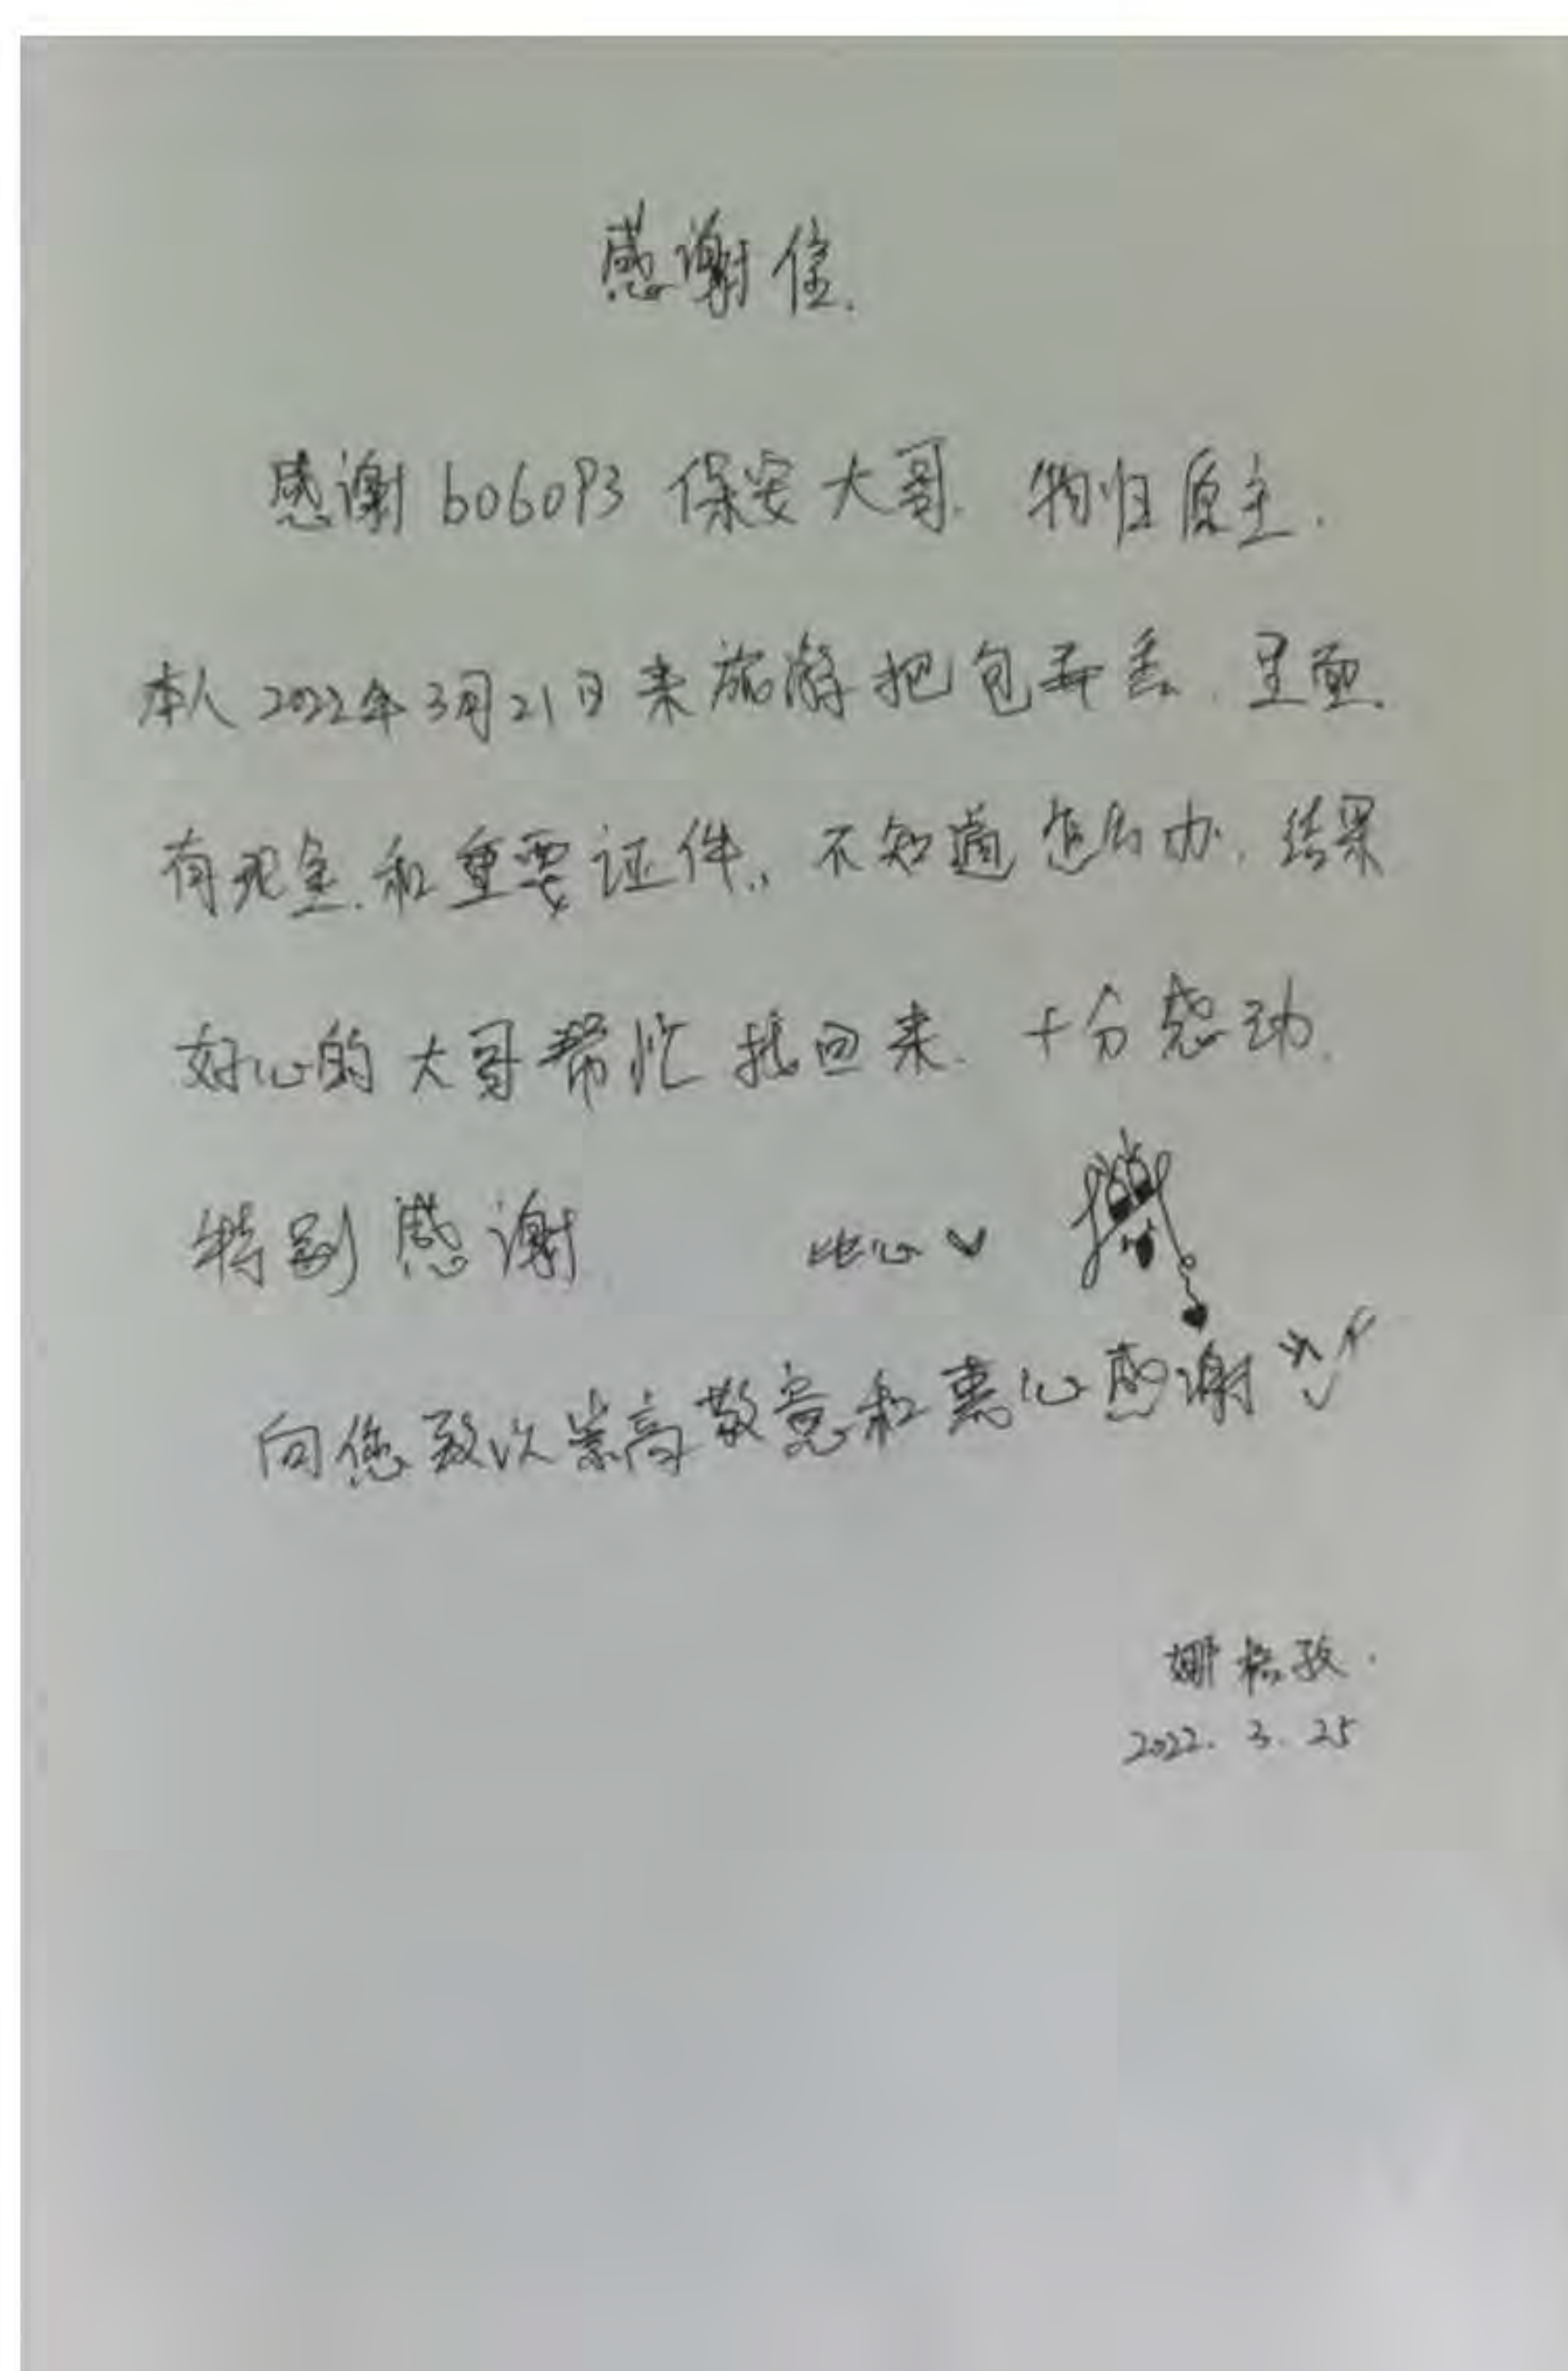 感谢信.
感谢 606093 保安大哥. 物归原主.
本人2022年3月21日来旅游把包弄丢. 里面
有现金.和重要证件., 不知道怎么办. 结果
好心的大哥帮忙找回来. 十分感动.
特别感谢. 比心
向您致以崇高敬意和衷心感谢
娜
2022. 3. 25